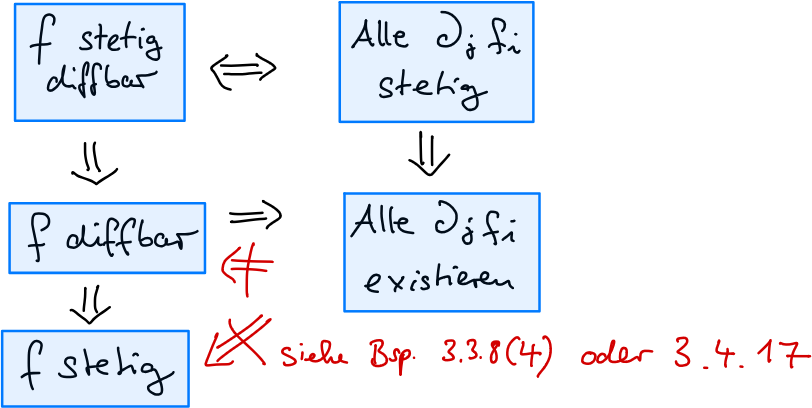 f stetig
diffbar
⇔
Alle ∂j fi
stetig
⇓
⇓
f diffbar
⇒
⇍
Alle ∂j fi
existieren
⇓
f stetig
siehe Bsp. 3.3.8(4) oder 3.4.17